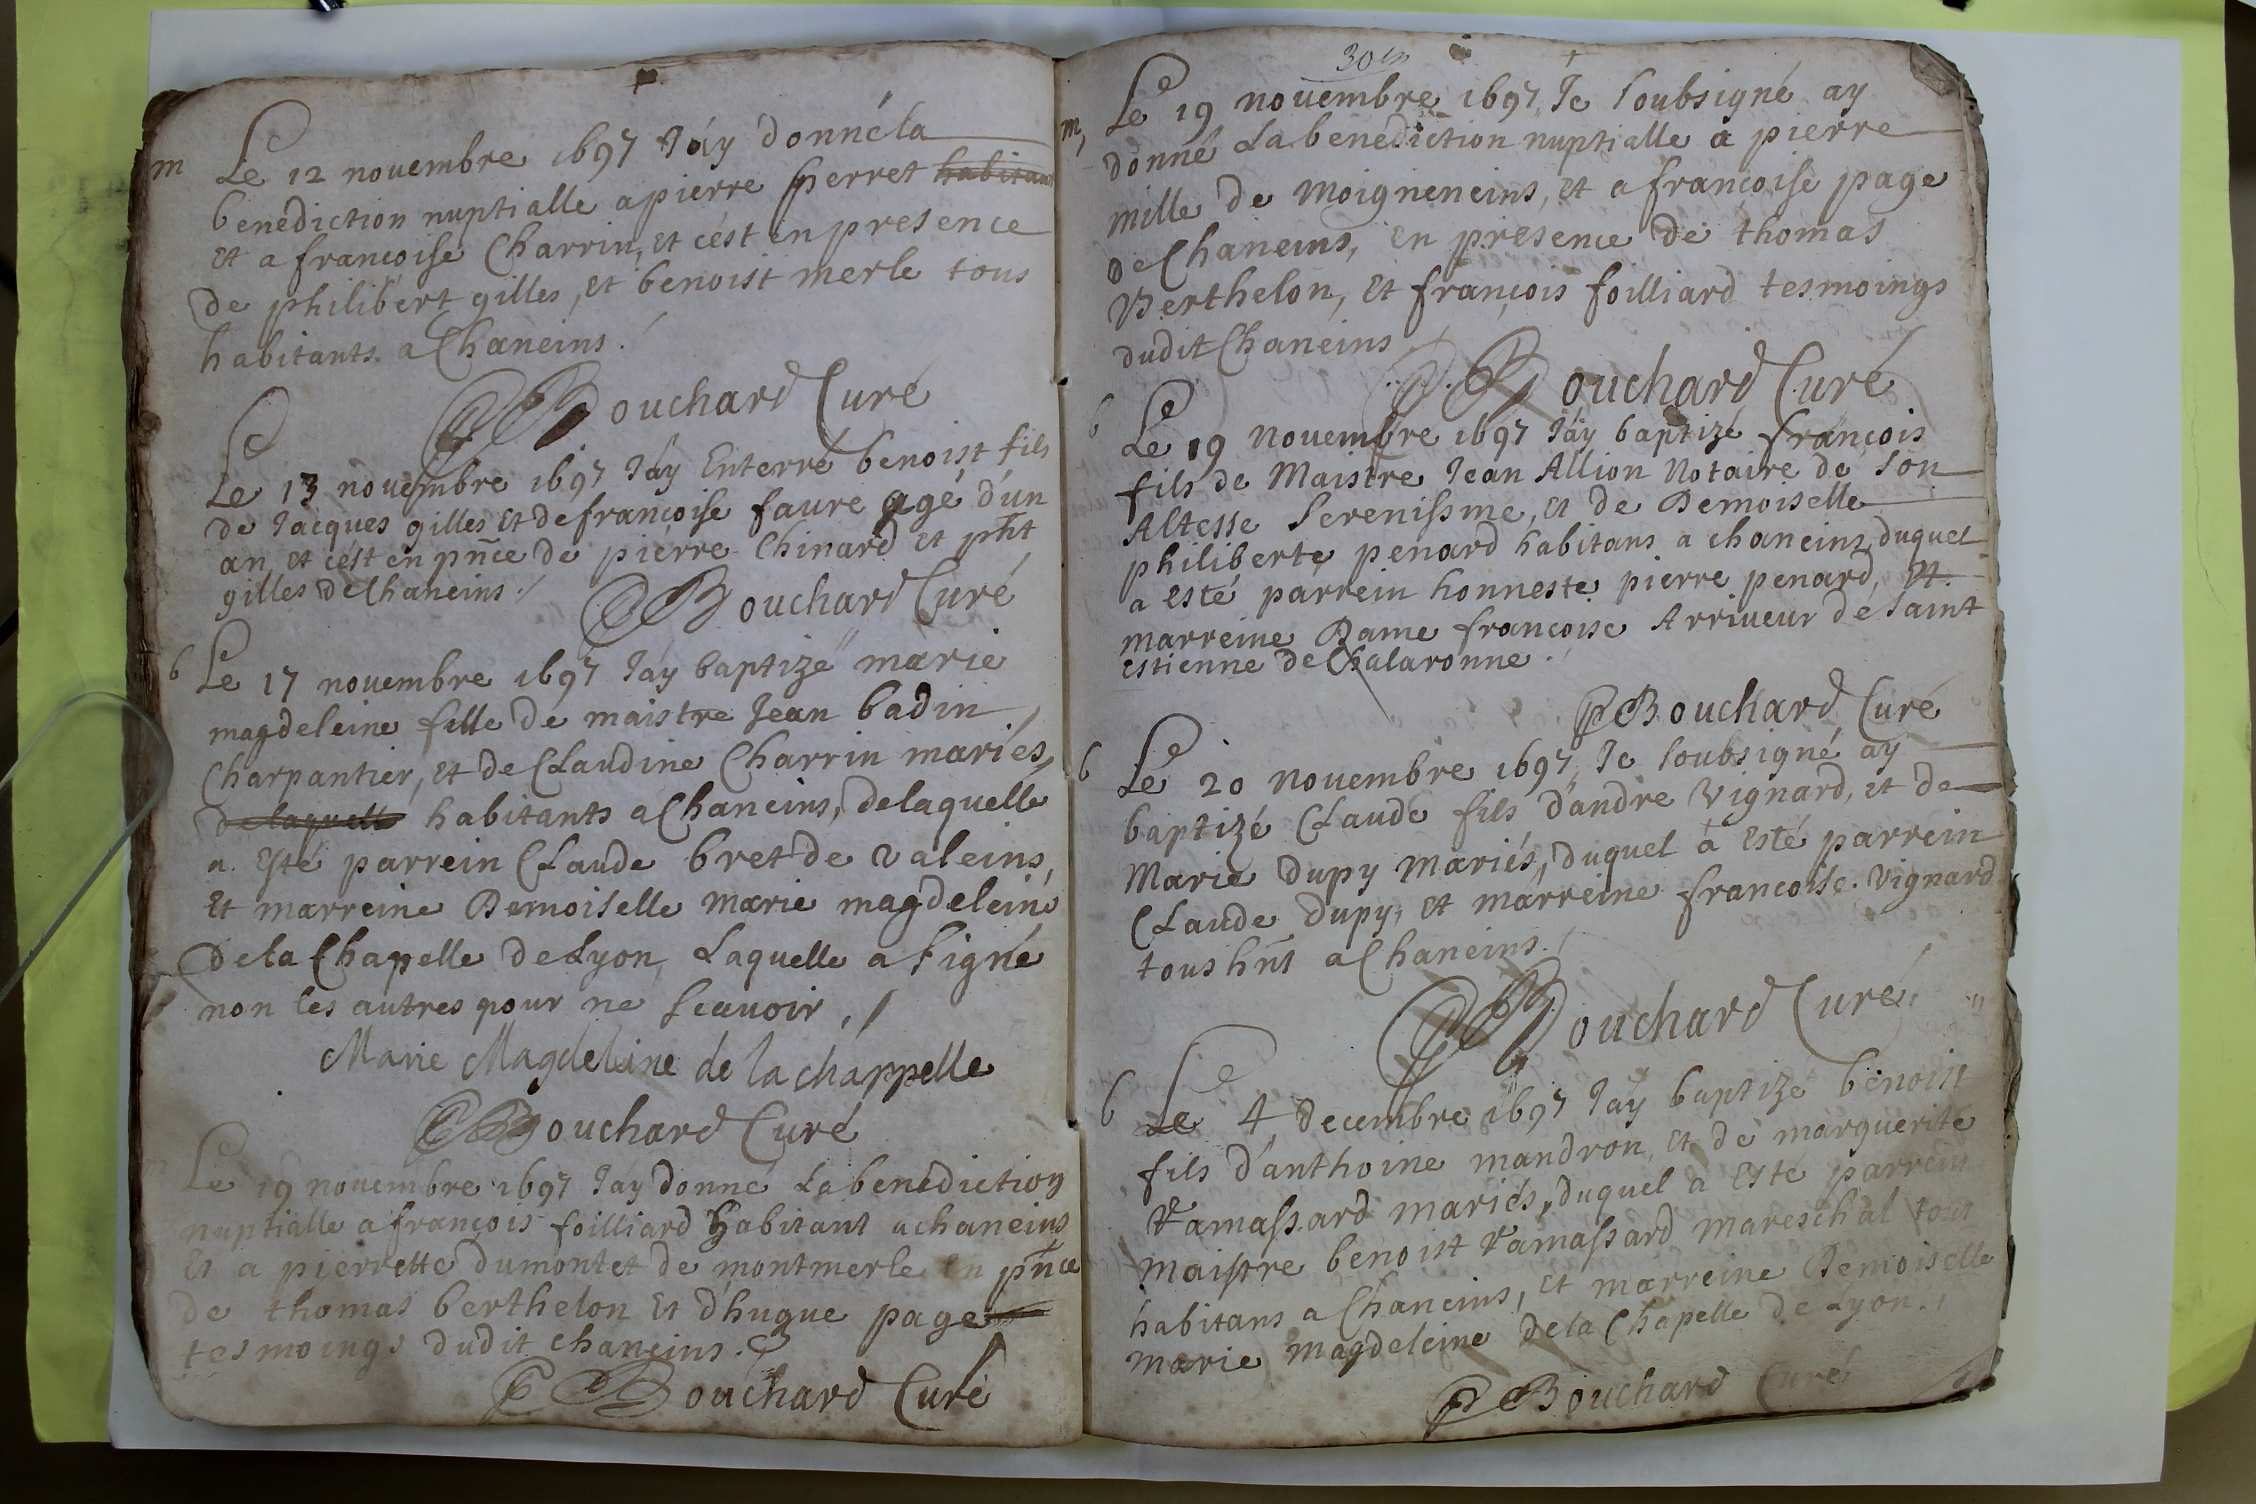 m Le 12 novembre 1697 J'ay donné la
benediction nuptialle a pierre perret habitant
et a francoise Charrin, et c'est en presence
de philibert gilles, et benoist merle tous
habitants a Chaneins.
PBouchard Curé
Le 13 novembre 1697 J'ay Enterré benoist fils
de Jacques gilles et de francoise faure agé d'un
an, et c'est en pñce de pierre Chinard et pht
gilles de Chaneins.
PBouchard Curé
b Le 17 novembre 1697 J'ay baptizé marie
magdeleine fille de maistre Jean badin
Charpantier, et de Claudine Charrin mariés,
de laquelle habitants a Chaneins, de laquelle
a Esté parrein Claude bret de valeins,
Et marreine Demoiselle marie magdeleine
de la Chapelle de Lyon, Laquelle a signé
non les autres pour ne scauoir,
Marie Magdeleine de la chappelle
PBouchard Curé
Le 19 nouembre 1697 J'ay donné La benediction
nuptialle a françois foilliard habitant a chaneins
Et a pierrette dumontet de montmerle en pñce
de thomas berthelon Et d'hugue page
tesmoings dudit chaneins.
PBouchard Curé
30
m, Le 19 nouembre 1697, Je soubsigné ay
donné La benediction nuptialle a pierre
mille de moigneneins, et a françoise page
de Chaneins, en presence de thomas
Berthelon, et françois foilliard tesmoings
dudit Chaneins
PBouchard Curé
b Le 19 nouembre 1697 J'ay baptizé françois
fils de Maistre Jean Allion Notaire de son
Altesse Serenissme, et de Demoiselle
philiberte penard habitans a chaneins, duquel
a esté parrein honneste pierre penard, et
marreine Dame françoise Arriueur de saint
estienne de Chalaronne.
PBouchard Curé
b Le 20 nouembre 1697, Je soubsigné ay
baptizé Claude fils d'andre Vignard, et de
Marie Dupy mariés, duquel à esté parrein
Claude Dupy, et marreine françoise Vignard
tous hñt a Chaneins.
PBouchard Curé
b Le 4 decembre 1697 J'ay baptizé benoist
fils d'anthoine mandron, et de marguerite
ramassard mariés, duquel a esté parrein
maistre benoist ramassard mareschal tous
habitans a Chaneins, et marreine Demoiselle
marie magdeleine de la Chapelle de Lyon.
PBouchard Curé